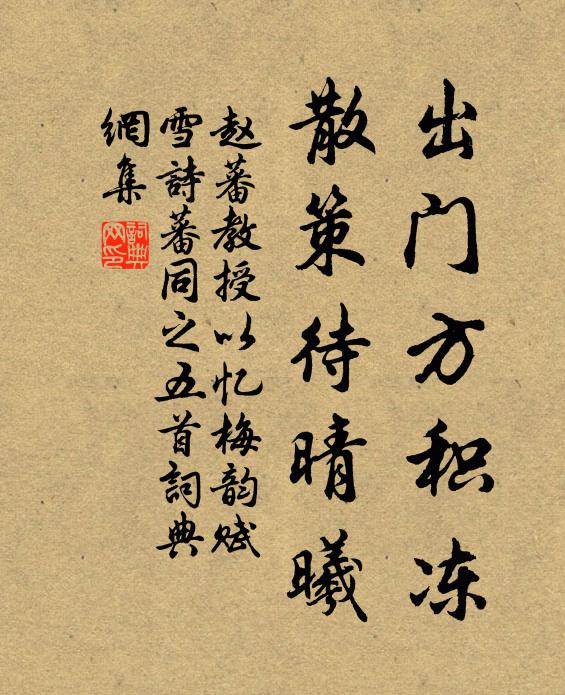 出门方积冻
散策待晴曦
赵蕃教授以忆梅韵赋
雪詩蕃同之五首詞典
網集
詞典
网印